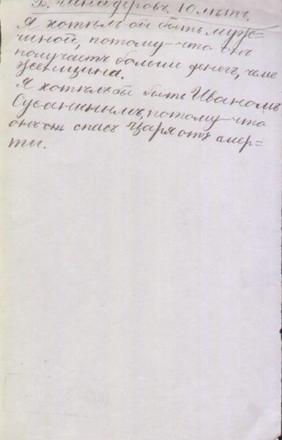 10 лѣтъ.
Я хотѣлъ бы быть мужчи=
ной, потому-что онъ
получаетъ больше денегъ, чемъ
женщина.
Я хотѣлъ бы быть Иваномъ
Сусанинымъ, потому-что
онъ спасъ Царя отъ смер=
ти.